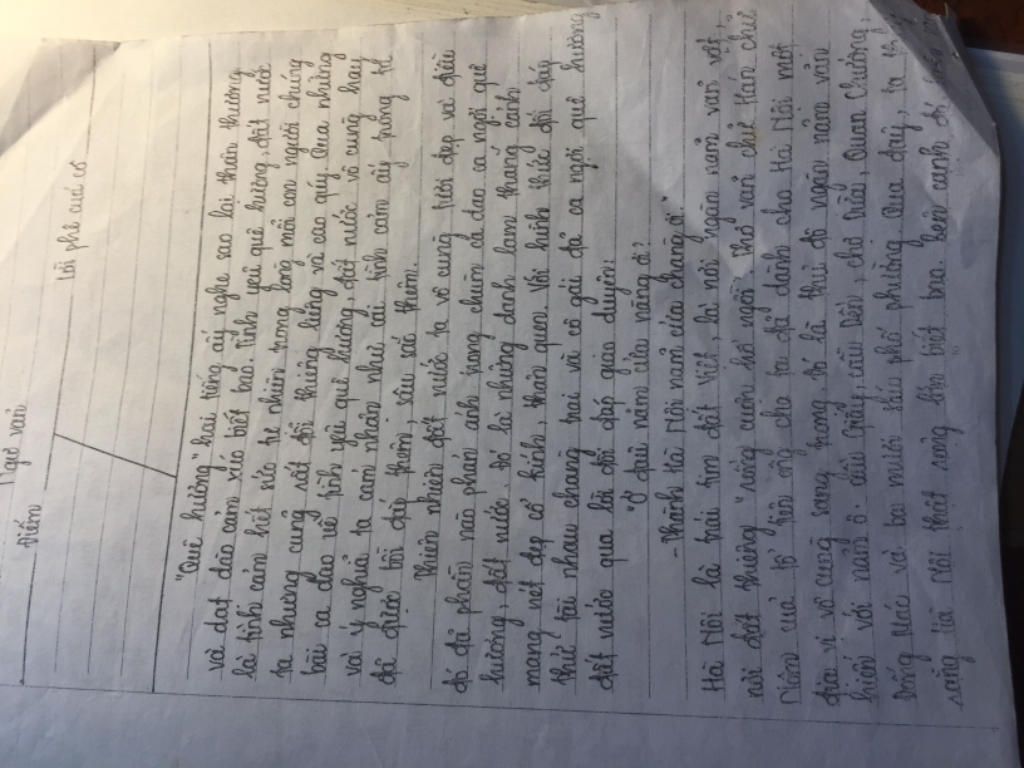 Ngữ văn
Điểm
Lời phê của cô
"Quê hương" hai tiếng ấy nghe sao lôi thân thương
và dạt dào cảm xúc biết bao. Tình yêu quê hương, đất nước
là tình cảm hết sức tự nhiên trong lòng mỗi con người chúng
ta nhưng cũng rất đỗi thiêng liêng và cao quý. Qua những
bài ca dao về tình yêu quê hương, đất nước vô cùng hay
và ý nghĩa ta cảm nhận như cái tình cảm ấy trong tớ
đã được bồi đắp thêm, sâu sắc thêm.
Thiên nhiên đất nước ta vô cùng tươi đẹp và điều
đó đã phần nào phản ánh trong chùm ca dao ca ngợi quê
hương, đất nước. Đó là những danh lam thắng cảnh
mang nét đẹp cổ kính, thân quen. Với hình thức đối đáp
thử tài nhau chàng trai và cô gái đã ca ngợi quê hương
đất nước qua lời đối đáp giao duyên:
"Ở đâu năm cửa nàng ơi?
- Thành Hà Nội năm cửa chàng ơi"
Hà Nội là trái tim đất Việt, là nơi ngàn năm văn vật,
nơi đất thiêng "rồng cuộn hổ ngồi". Thơ văn chữ Hán chữ
Nôm của tổ tiên ông cha ta đã dành cho Hà Nội một
địa vị vô cùng sang trọng đó là thủ đô ngàn năm văn
hiến với năm ô: Cầu Giấy, Cầu Dền, Chợ Dừa, Quan Chưởng,
Đống Mác và ba mươi sáu phố phường. Qua đây, ta thấy
rằng Hà Nội thật rộng lớn biết bao. Bên cạnh đó